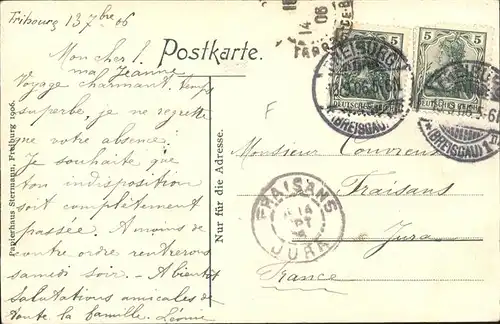 Fribourg 13 7bre 06
Mon cher !.
ma Jeanne
Voyage charmant, temps
superbe, je ne regrette
que votre absence.
Je souhaite que
ton indisposition
soit complètement
passée. A moins de
contre ordre rentrerons
samedi soir. - A bientôt
Salutations amicales de
toute la famille. Léonie
Papierhaus Stermann, Freiburg 1906.
Postkarte.
Nur für die Adresse.
14
06
5
5
5
5
DEUTSCHES REICH
FREIBURG
13.9.06
(BREISGAU)
FREIBURG
*(BREISGAU)1
F
Monsieur Couvreux
Fraisans
Jura
France
FRAISANS
14
JURA